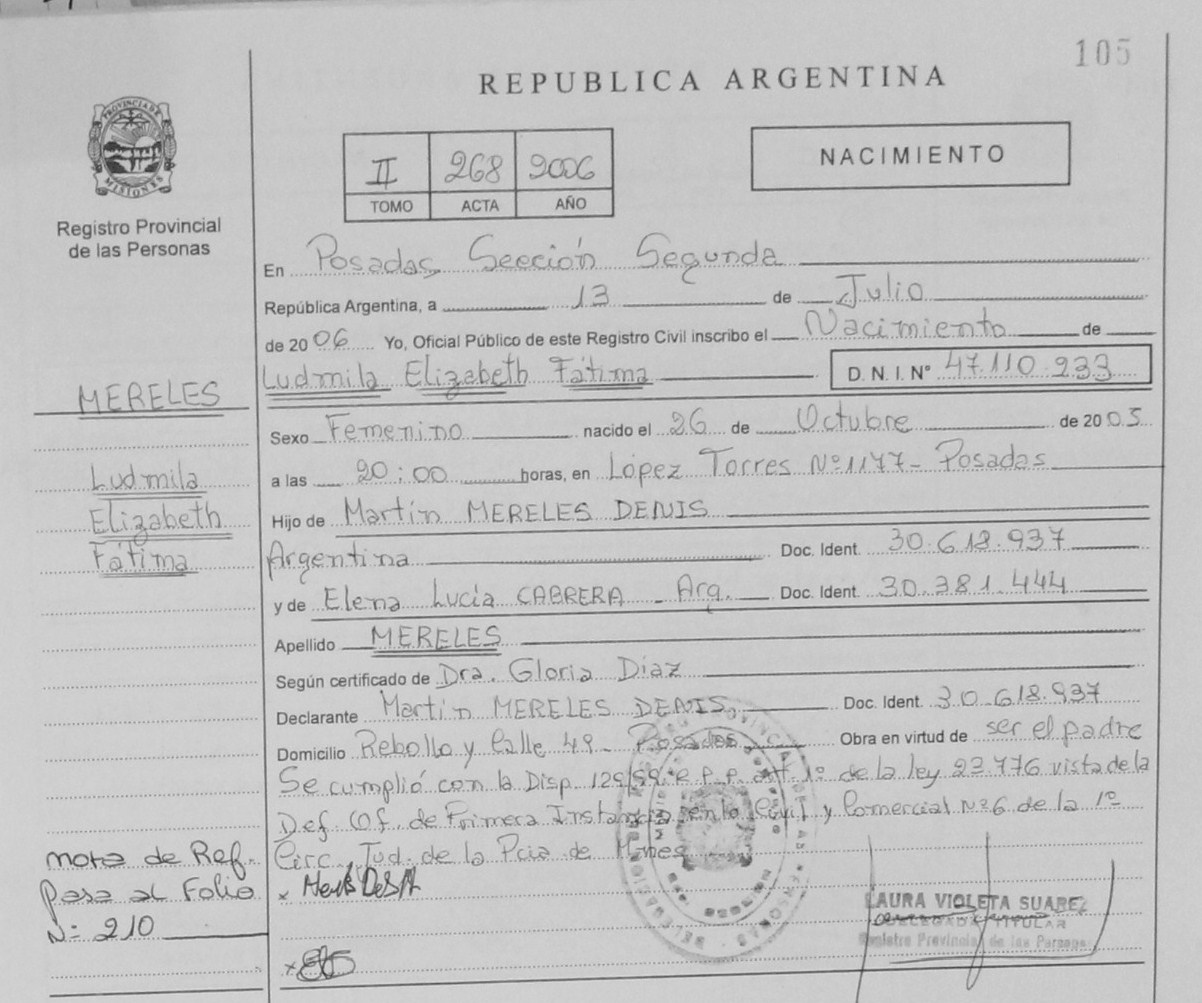 105
REPUBLICA ARGENTINA
PROVINCIA DE MISIONES
Registro Provincial
de las Personas
II 268 2006
TOMO ACTA AÑO
NACIMIENTO
En Posadas Sección Segunda
República Argentina, a 13 de Julio
de 2006 Yo, Oficial Público de este Registro Civil inscribo el Nacimiento de
Ludmila Elizabeth Fátima D. N. I. N° 47.110.233
MERELES
Sexo Femenino nacido el 26 de Octubre de 2005
Ludmila
Elizabeth
Fátima
a las 20:00 horas, en López Torres Nº1177- Posadas
Hijo de Martín MERELES DENIS
Argentina Doc. Ident. 30.618.937
y de Elena Lucía CABRERA - Arg. Doc. Ident. 30.381.444
Apellido MERELES
Según certificado de Dra. Gloria Diaz
Declarante Martín MERELES DENIS Doc. Ident. 30.618.937
Domicilio Rebollo y Calle 49- Posadas Obra en virtud de ser el padre
Se cumplió con la Disp. 129/99 R.P.P. art. 1º de la ley 23.776 vista de la
Def. Of. de Primera Instancia en lo Civil y Comercial Nº6 de la 1º
Circ. Jud. de la Pcia de Mnes
nota de Ref.
Pasa al Folio
N= 210
LAURA VIOLETA SUAREZ
DELEGADA TITULAR
Registro Provincial de las Personas